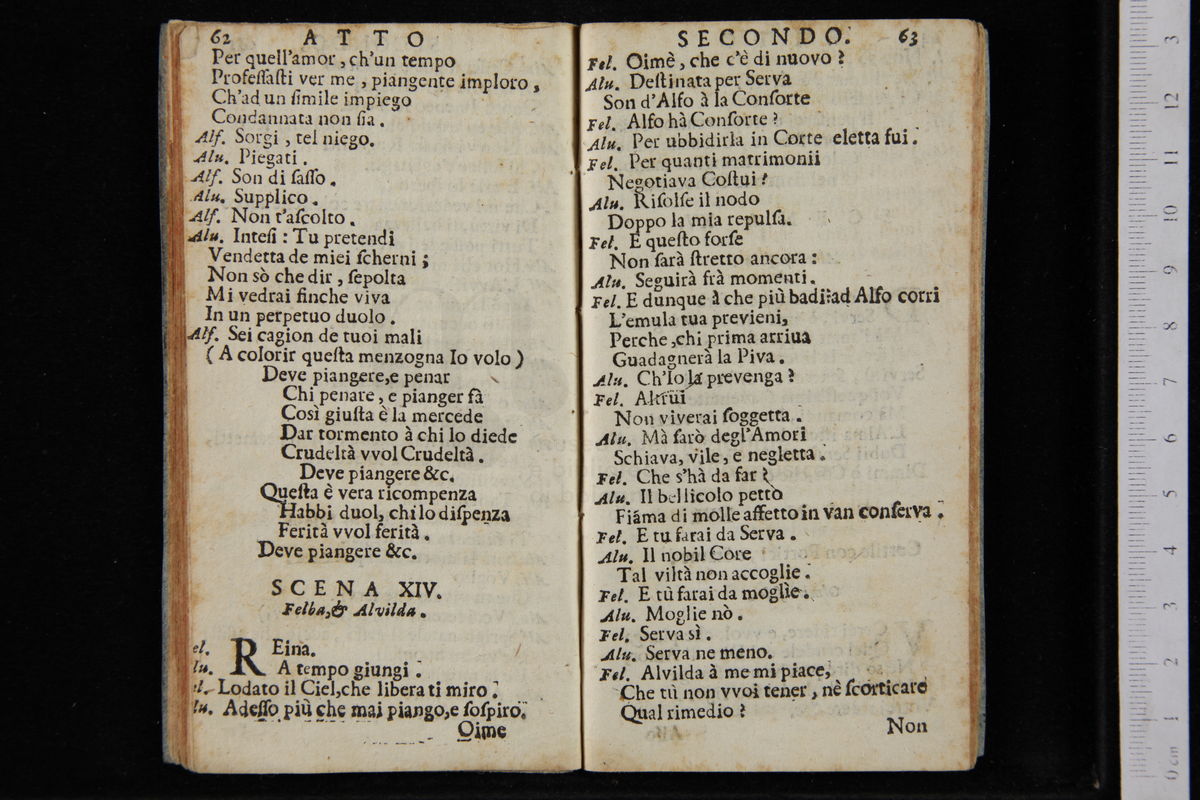 62 ATTO
Per quell'amor, ch'un tempo
Profeſſaſti ver me, piangente imploro,
Ch'ad un ſimile impiego
Condannata non ſia.
Alf. Sorgi, tel niego.
Alu. Piegati.
Alf. Son di ſaſſo.
Alu. Supplico.
Alf. Non t'aſcolto.
Alu. Inteſi: Tu pretendi
Vendetta de miei ſcherni;
Non sò che dir, ſepolta
Mi vedrai finche viva
In un perpetuo duolo.
Alf. Sei cagion de tuoi mali
(A colorir queſta menzogna Io volo)
Deve piangere, e penar
Chi penare, e pianger fà
Così giuſta è la mercede
Dar tormento à chi lo diede
Crudeltà vvol Crudeltà.
Deve piangere &c.
Queſta è vera ricompenza
Habbi duol, chi lo diſpenza
Ferità vvol ferità.
Deve piangere &c.
SCENA XIV.
Felba, & Alvilda.
el. REina.
lu. A tempo giungi.
el. Lodato il Ciel, che libera ti miro.
lu. Adeſſo più che mai piango, e ſoſpiro.
Oime
SECONDO. 63
Fel. Oimè, che c'è di nuovo?
Alu. Deſtinata per Serva
Son d'Alfo à la Conſorte
Fel. Alfo hà Conſorte?
Alu. Per ubbidirla in Corte eletta fui.
Fel. Per quanti matrimonii
Negotiava Coſtui?
Alu. Riſolſe il nodo
Doppo la mia repulſa.
Fel. E queſto forſe
Non ſarà ſtretto ancora:
Alu. Seguirà frà momenti.
Fel. E dunque à che più badi? ad Alfo corri
L'emula tua previeni,
Perche, chi prima arriua
Guadagnerà la Piva.
Alu. Ch'Io la prevenga?
Fel. Altrui
Non viverai ſoggetta.
Alu. Mà ſarò degl'Amori
Schiava, vile, e negletta.
Fel. Che s'hà da far?
Alu. Il bellicolo petto
Fiãma di molle affetto in van conſerva.
Fel. E tu farai da Serva.
Alu. Il nobil Core
Tal viltà non accoglie.
Fel. E tù farai da moglie.
Alu. Moglie nò.
Fel. Serva sì.
Alu. Serva ne meno.
Fel. Alvilda à me mi piace,
Che tù non vvoi tener, nè ſcorticare
Qual rimedio?
Non